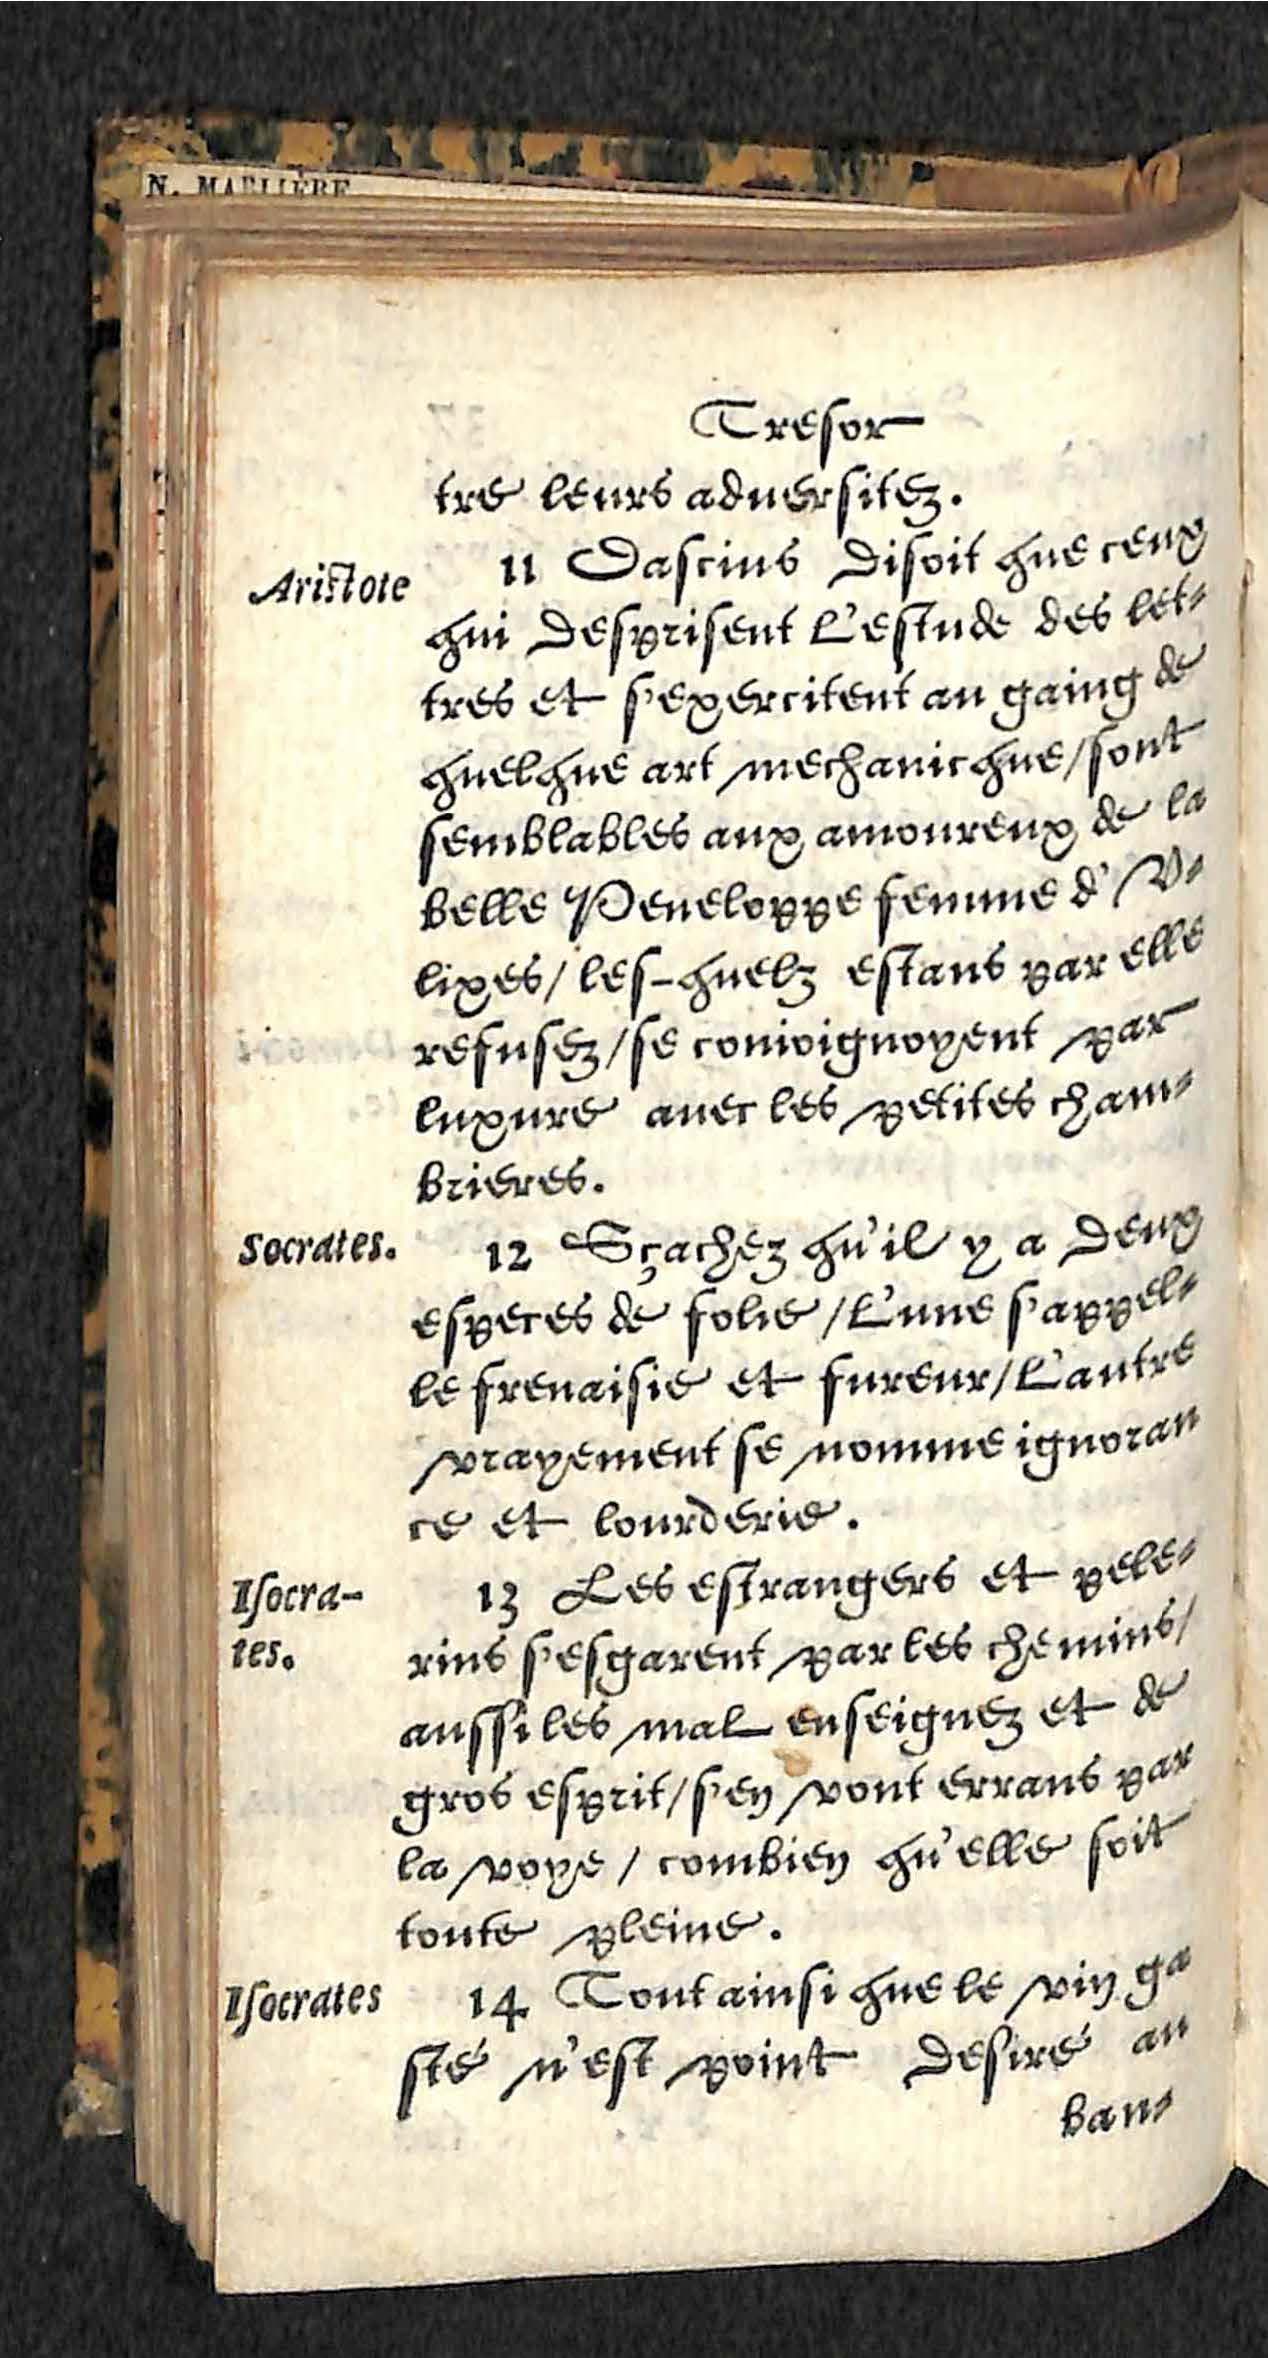 N. MARLIÈRE
Tresor
tre leurs aduersitez.
Aristote
11 Dascius disoit que ceux
qui desprisent l'estude des let-
tres et s'exercitent au gaing de
quelque art mechanicque/sont
semblables aux amoureux de la
belle Peneloppe femme d'V-
lixes/les-quelz estans par elle
refusez/se conioignoyent par
luxure auec les petites cham-
brieres.
Socrates.
12 Sçachez qu'il y a deux
especes de folie/l'une s'appel-
le frenaisie et fureur/l'autre
vrayement se nomme ignoran
ce et lourderie.
Isocra-
tes.
13 Les estrangers et pele-
rins s'esgarent par les chemins/
aussi les mal enseignez et de
gros esprit/s'en vont errans par
la voye/combien qu'elle soit
toute pleine.
Isocrates
14 Tout ainsi que le vin ga
sté n'est point desiré au
ban-